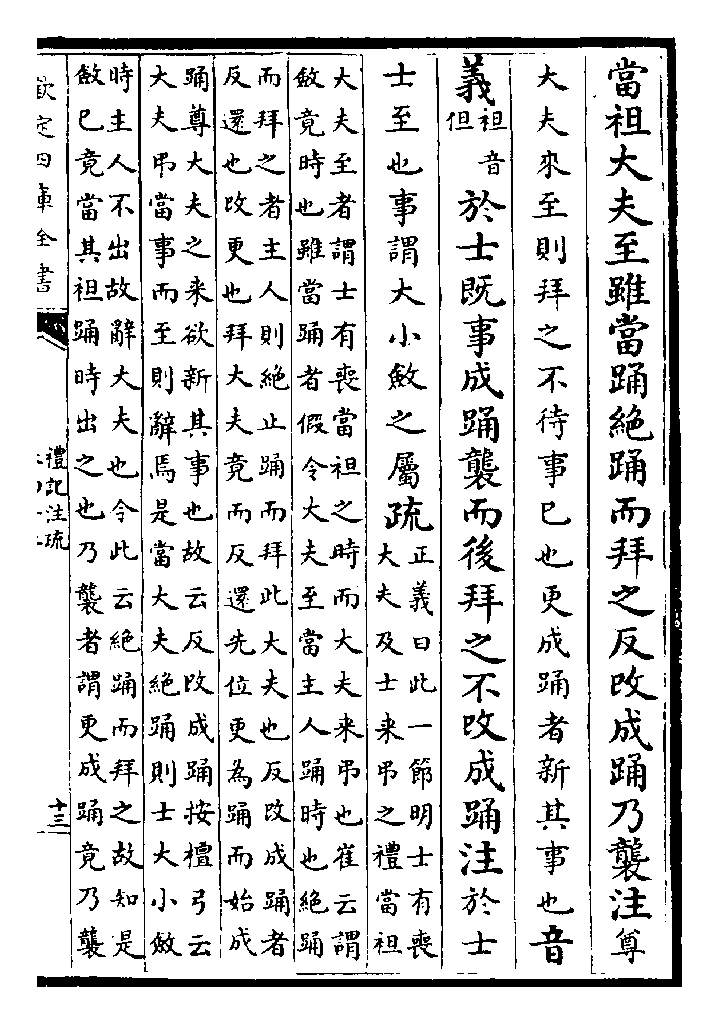 當袒大夫至雖當踊絶踊而拜之反改成踊乃襲注尊
大夫來至則拜之不待事已也更成踊者新其事也音
義袒音但於士既事成踊襲而後拜之不改成踊注於士
士至也事謂大小斂之屬疏正義曰此一節明士有喪
大夫及士来弔之禮當袒
大夫至者謂士有喪當袒之時而大夫来弔也崔云謂
斂竟時也雖當踊者假令大夫至當主人踊時也絶踊
而拜之者主人則絶止踊而拜此大夫也反改成踊者
反還也改更也拜大夫竟而反還先位更為踊而始成
踊尊大夫之来欲新其事也故云反改成踊按檀弓云
大夫弔當事而至則辭焉是當大夫絶踊則士大小斂
時主人不出故辭大夫也今此云絶踊而拜之故知是
斂已竟當其袒踊時出之也乃襲者謂更成踊竟乃襲
欽定四庫全書
禮記注疏
十三